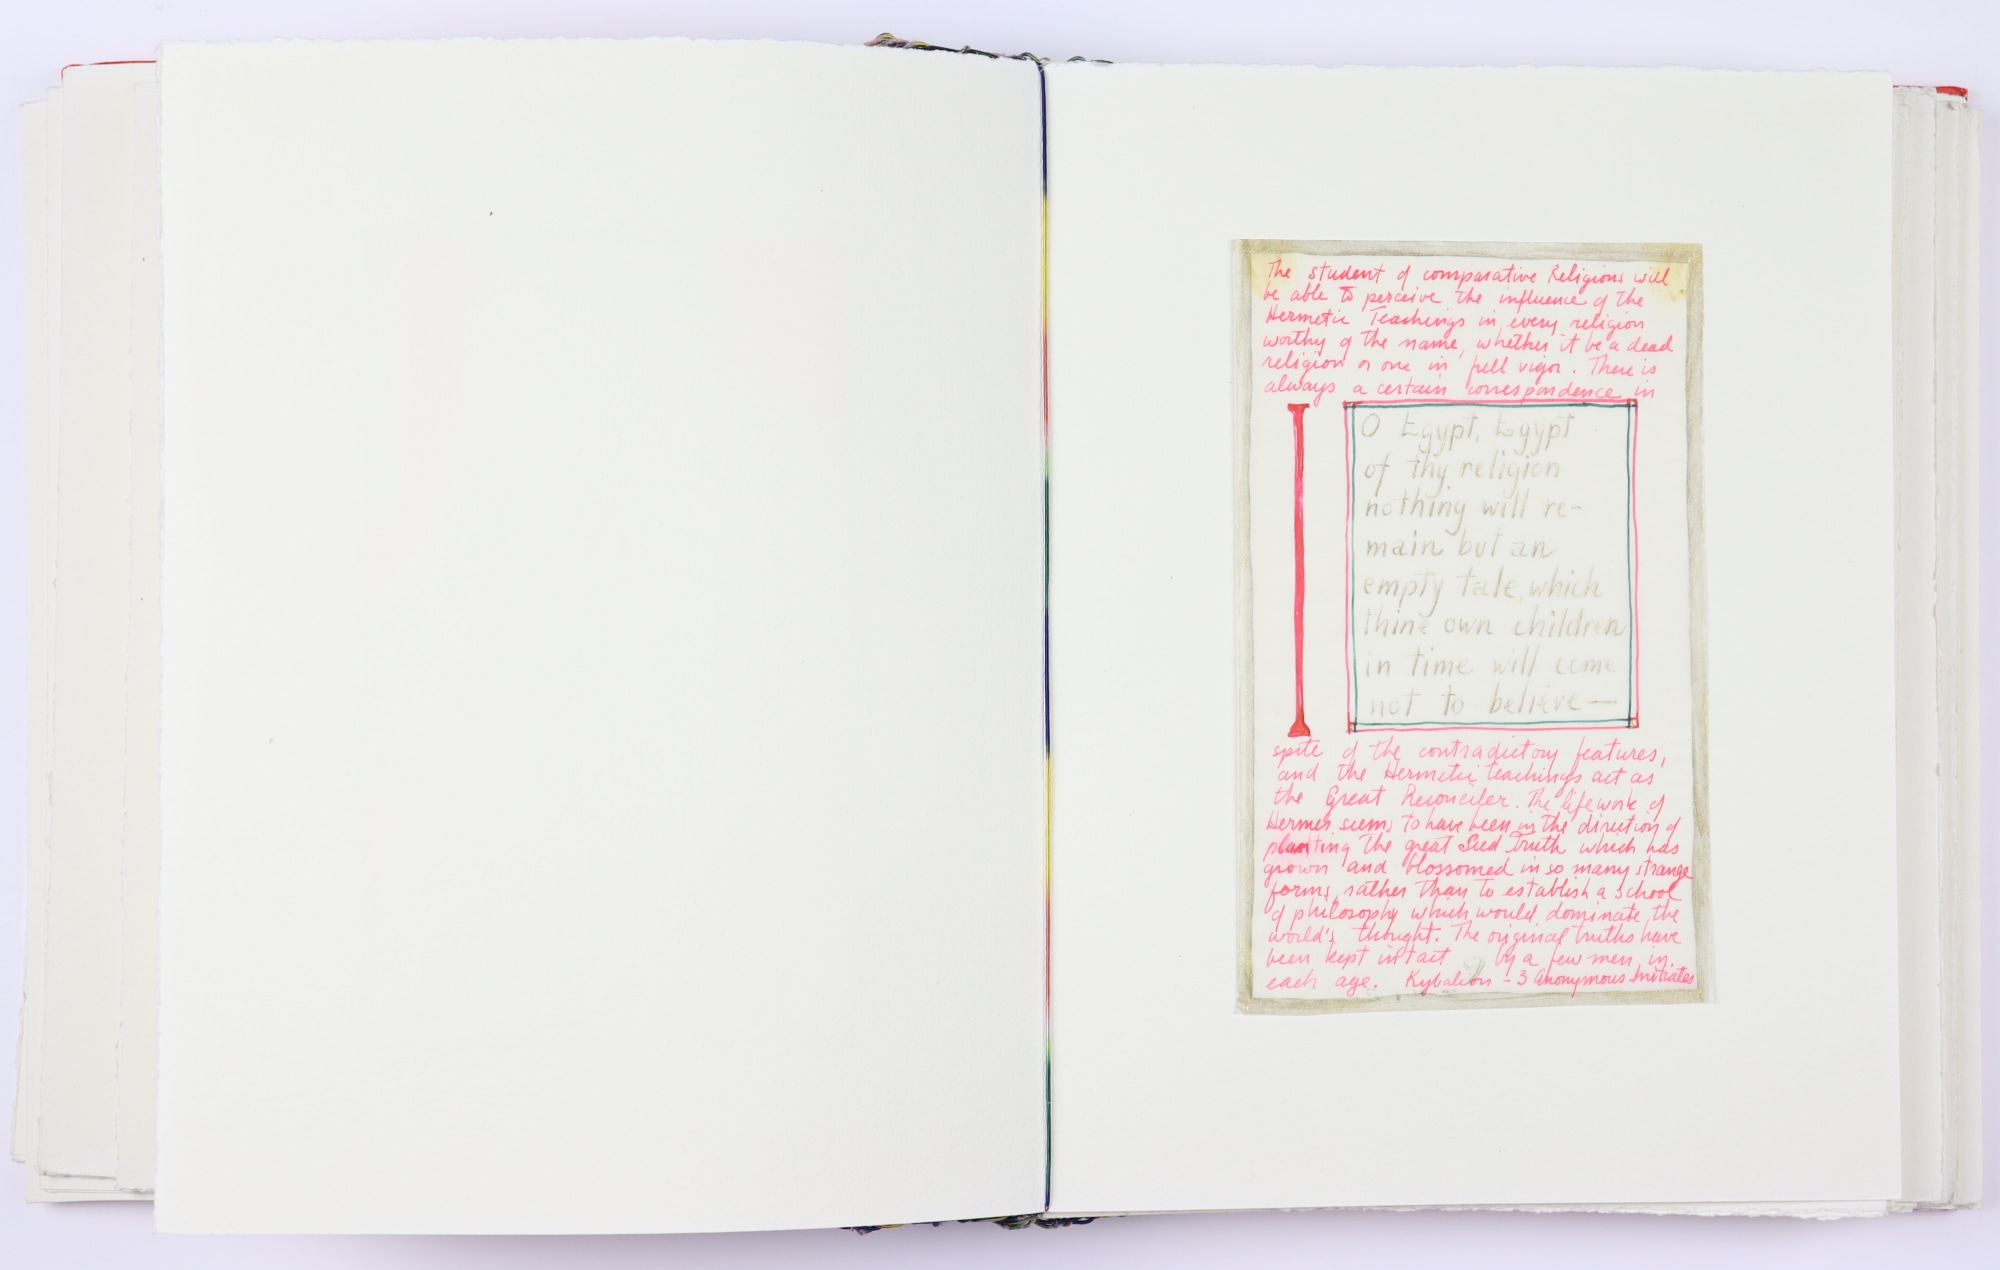 The student of comparative Religions will
be able to perceive the influence of the
Hermetic Teachings in every religion
worthy of the name, whether it be a dead
religion or one in full vigor. There is
always a certain correspondence in
O Egypt, Egypt
of thy religion
nothing will re-
main but an
empty tale, which
thine own children
in time will come
not to believe—
spite of the contradictory features,
and the Hermetic teachings act as
the Great Reconciler. The lifework of
Hermes seems to have been in the direction of
planting the great Seed Truth which has
grown and blossomed in so many strange
forms, rather than to establish a school
of philosophy which would dominate the
world's thought. The original truths have
been kept intact by a few men in
each age. Kybalion - 3 Anonymous Initiates